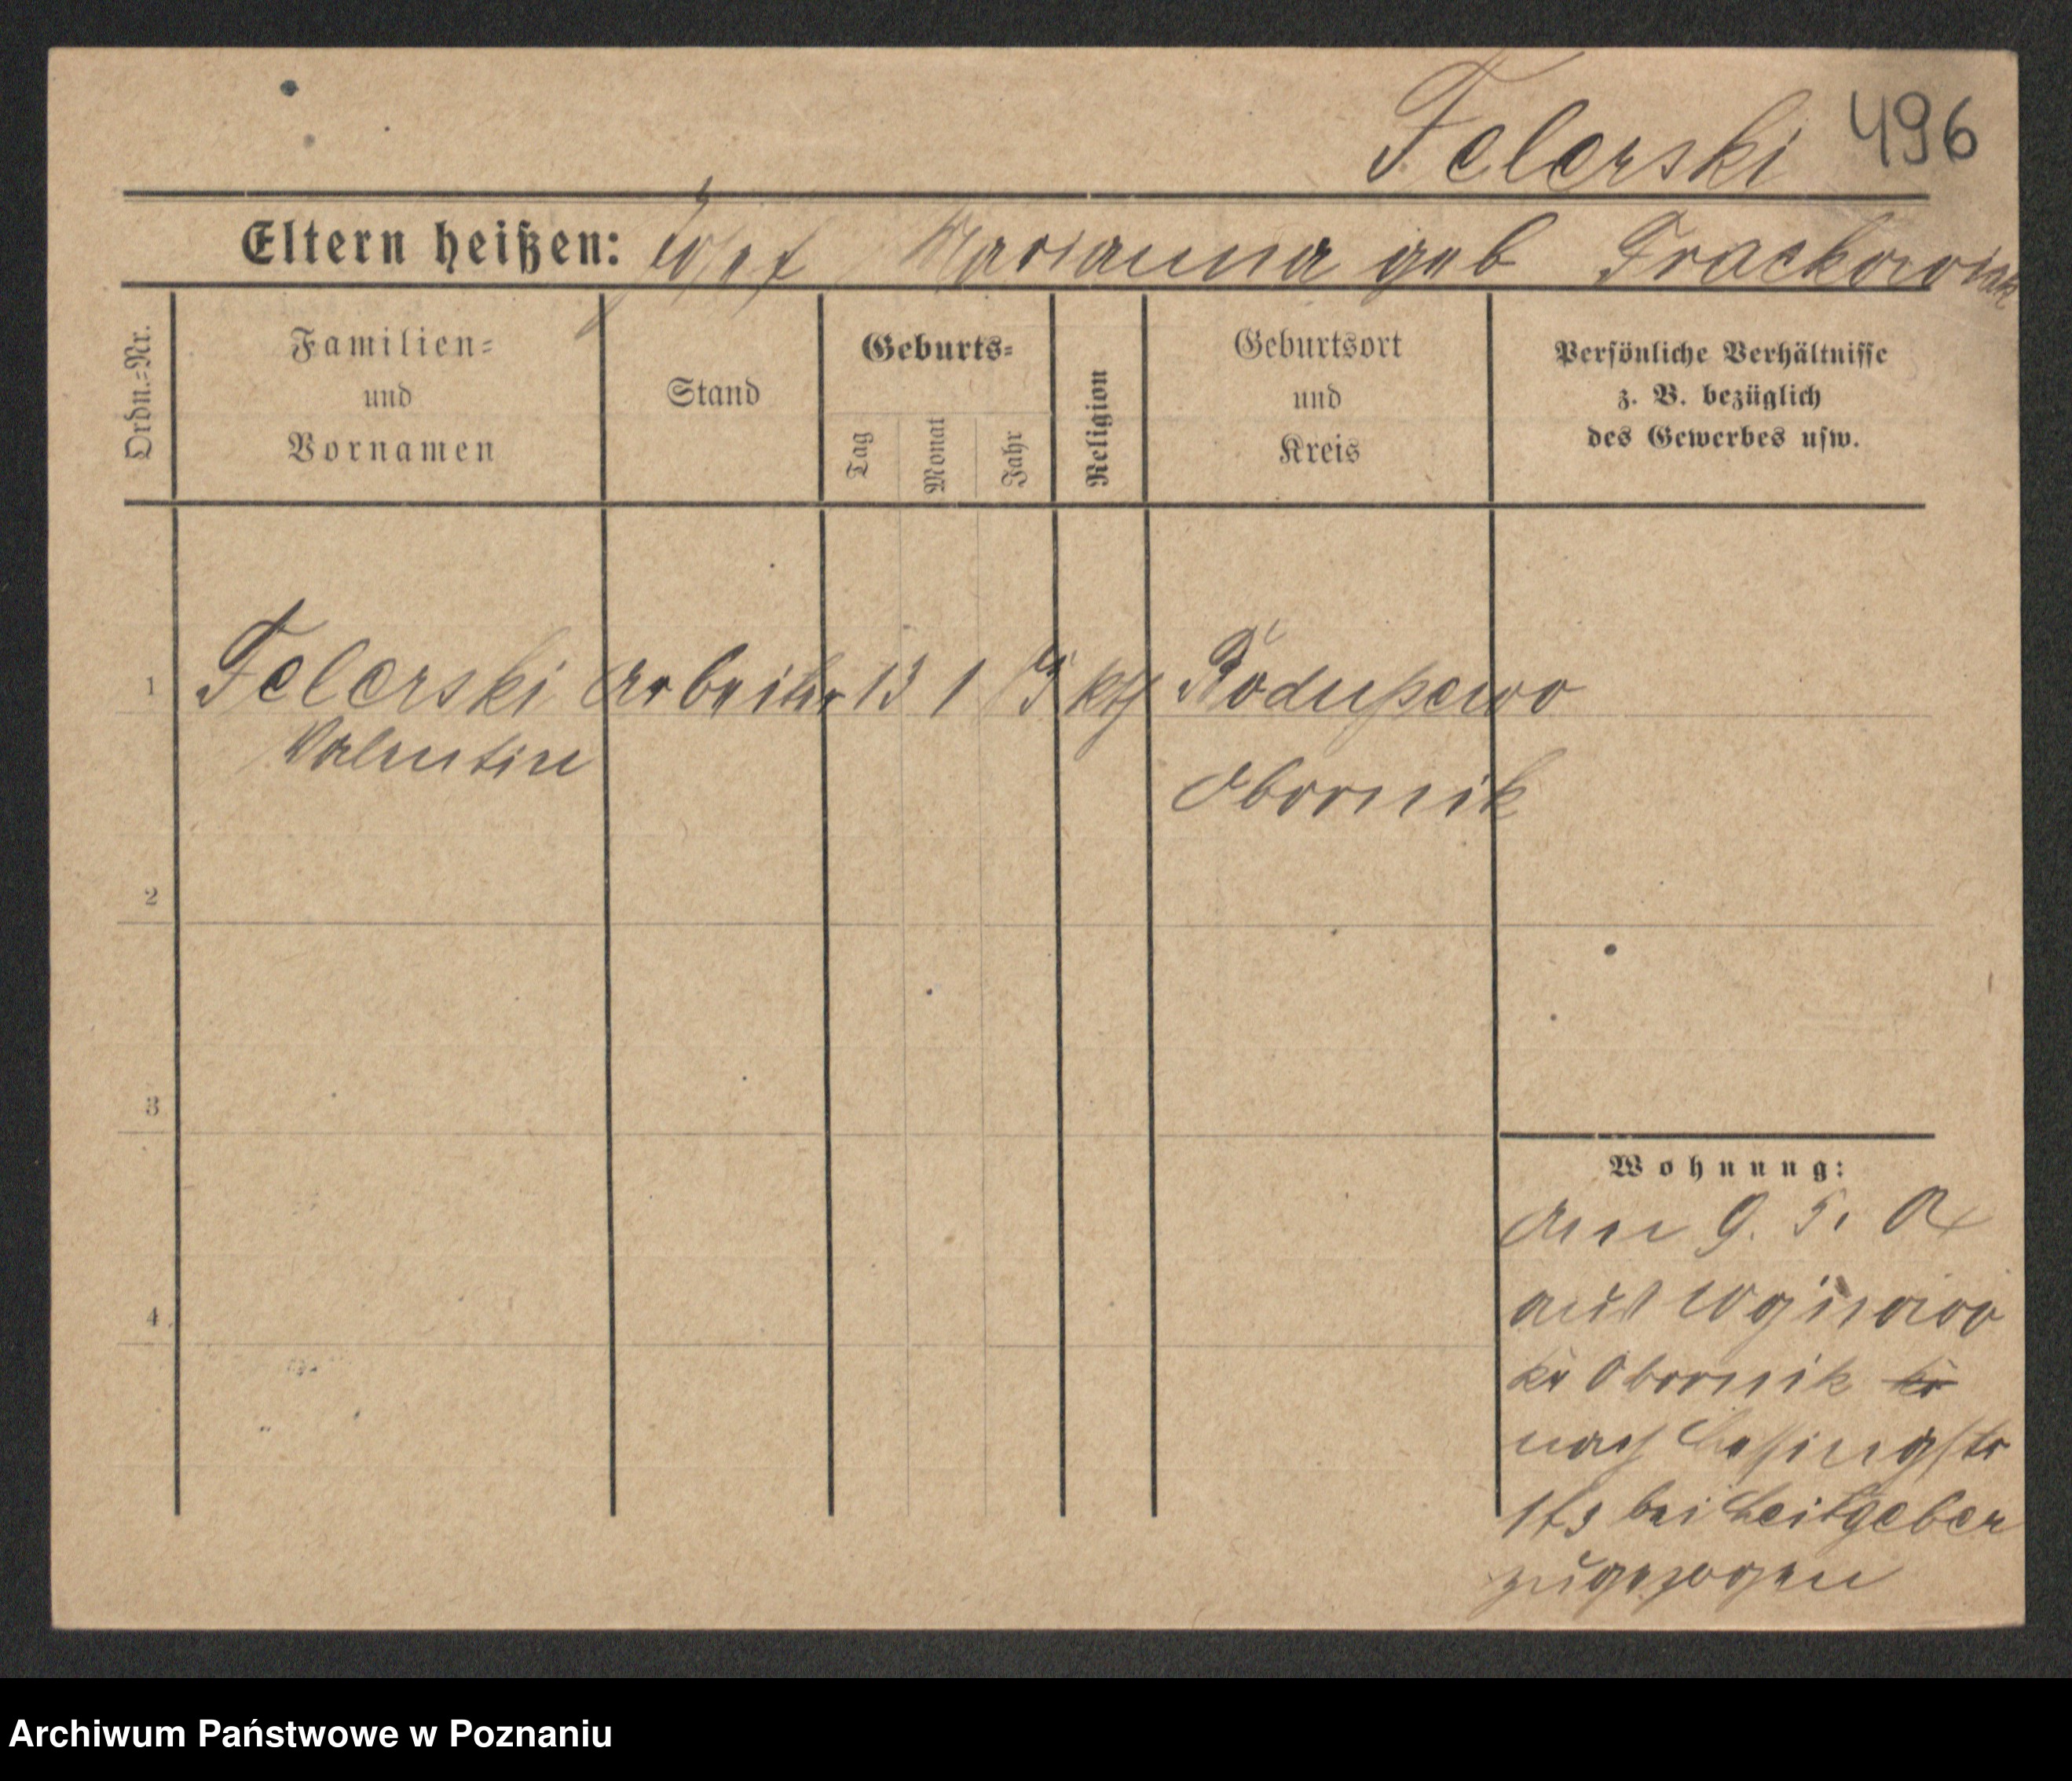 Felerski 496
Eltern heißen: Josef Marianna geb Frackowiak
Ordn.-Nr.
Familien-
und
Vornamen
Stand
Geburts-
Tag
Monat
Jahr
Religion
Geburtsort
und
Kreis
Persönliche Verhältnisse
z. B. bezüglich
des Gewerbes usw.
1 Felerski Arbeiter 13 1 kth
Valentin
Obornik
2
3
4
Wohnung:
9. 5.
aus
Kr Obornik Kr
nach Lessingstr
bei Leitgeber
zugezogen
Archiwum Państwowe w Poznaniu